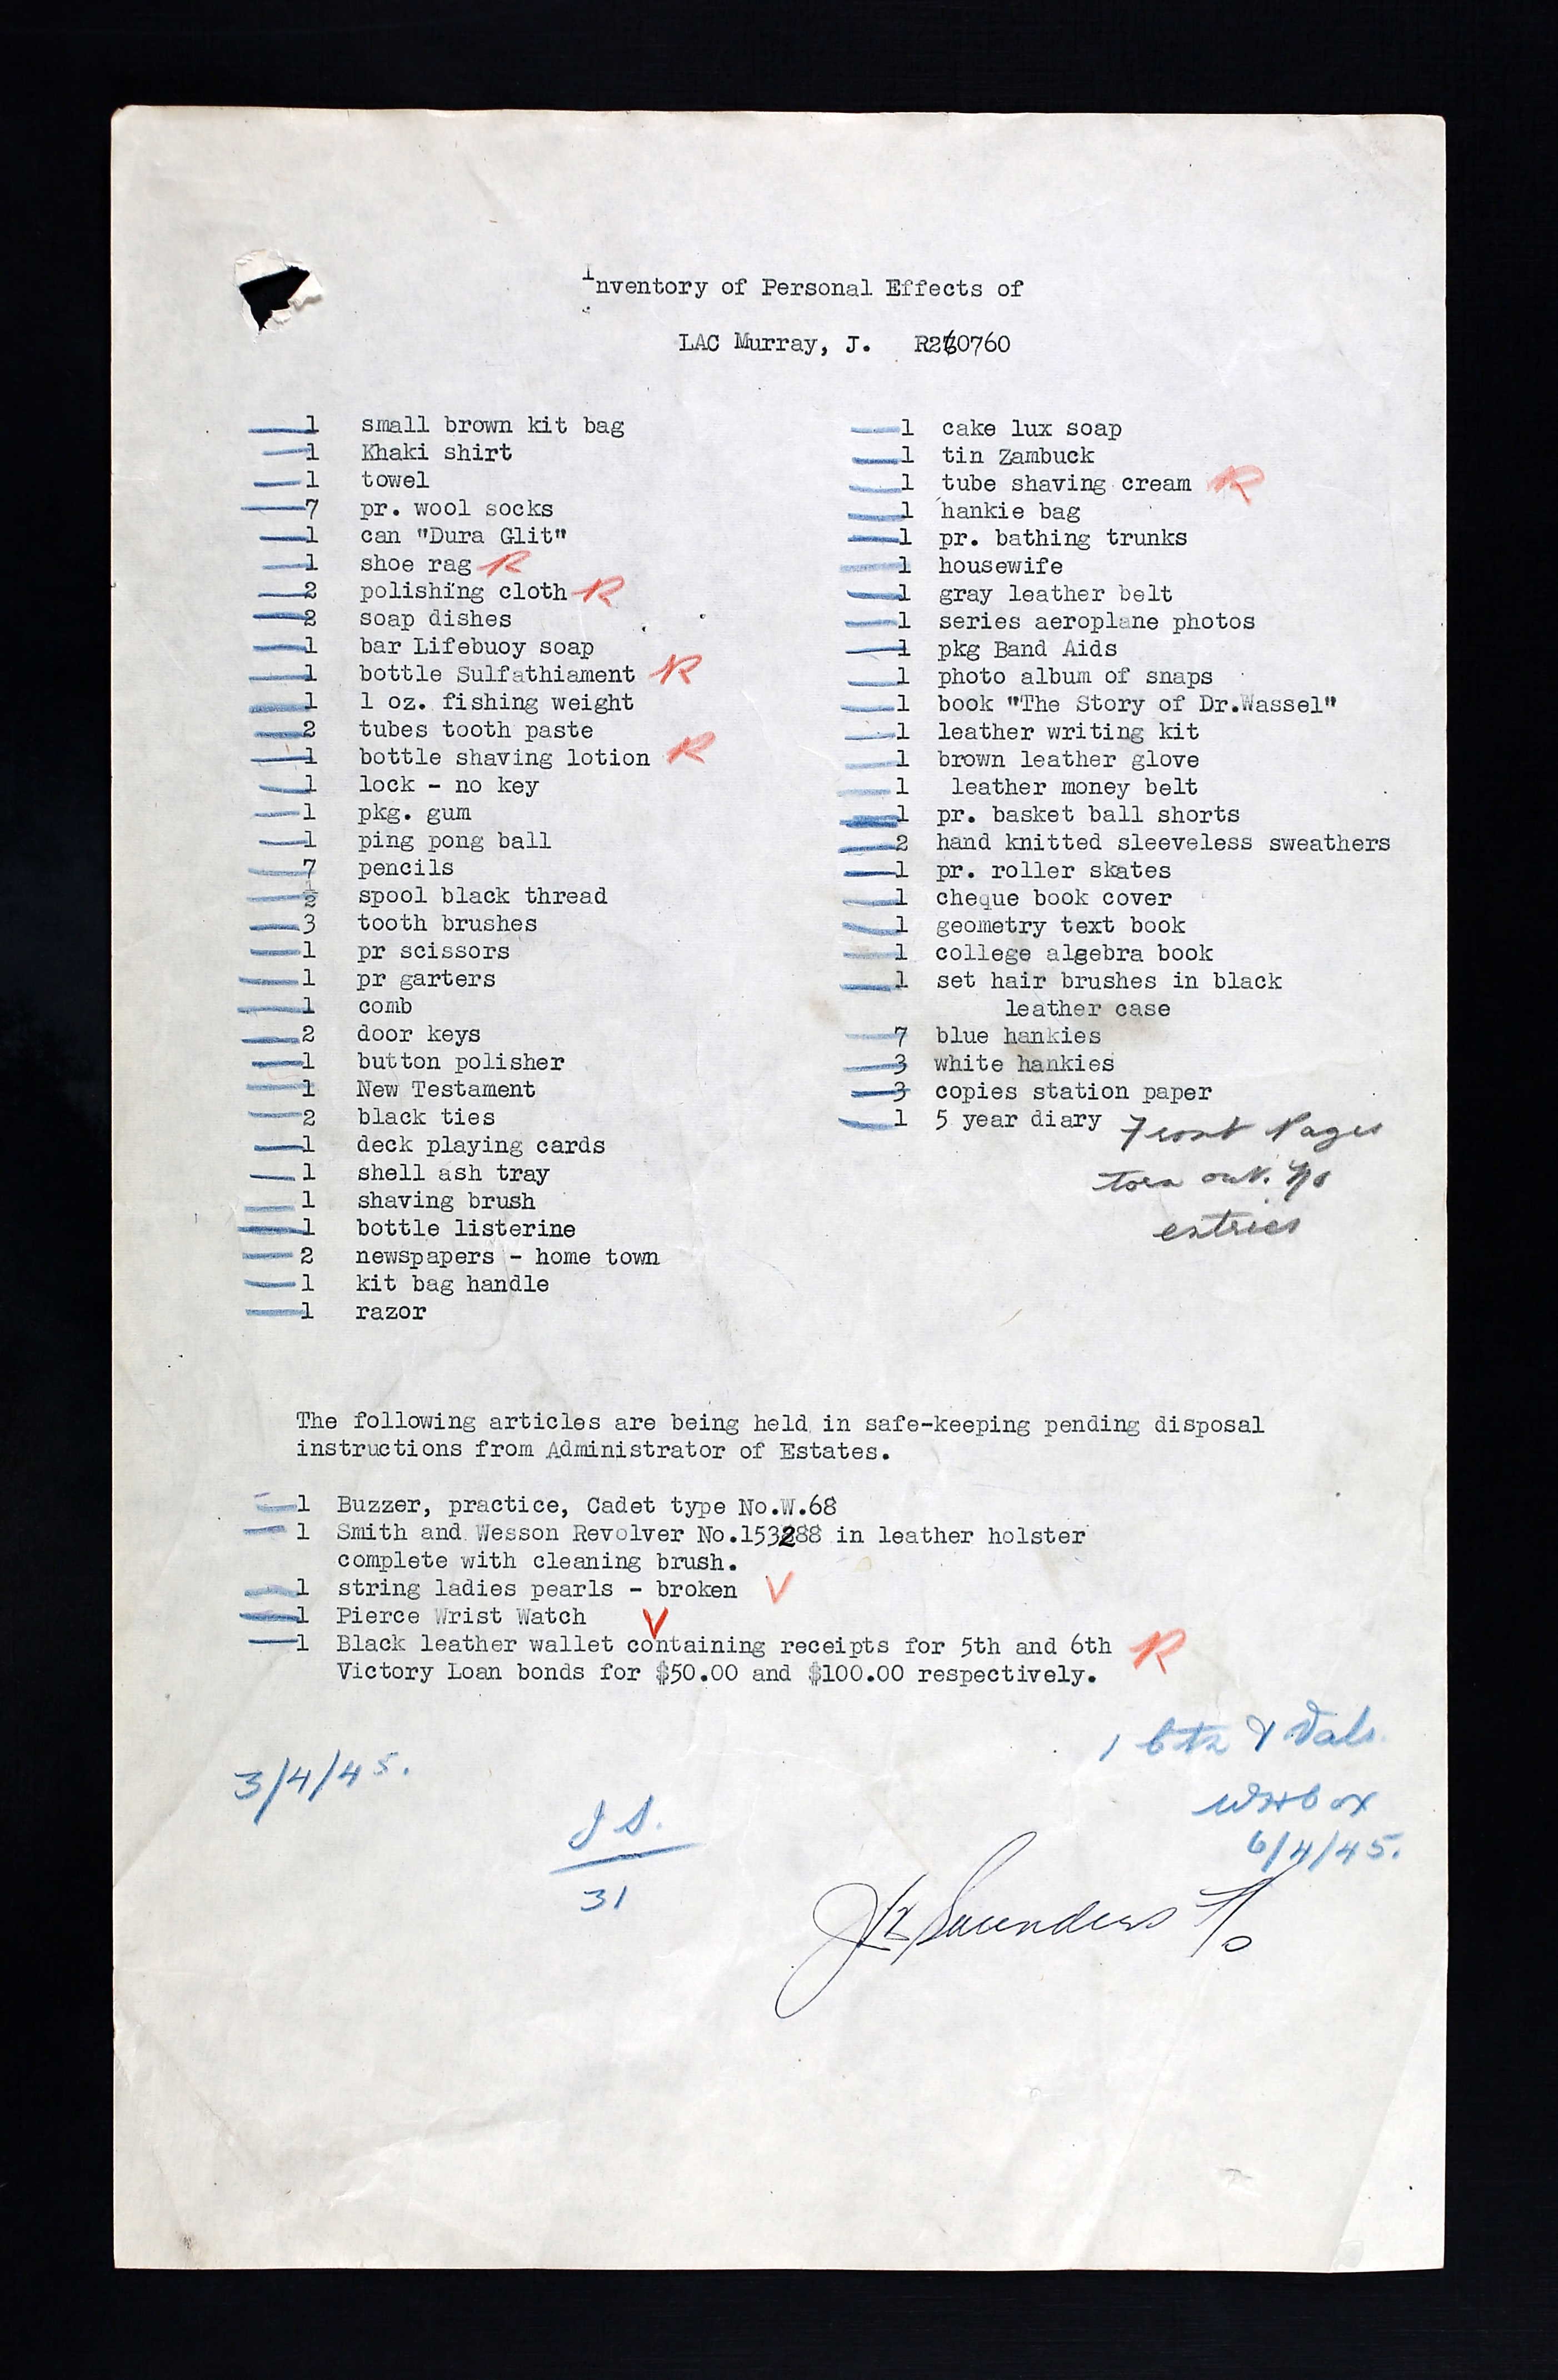 Inventory of Personal Effects of
LAC Murray, J. R260760
1 small brown kit bag
1 Khaki shirt
1 towel
7 pr. wool socks
1 can "Dura Glit"
1 shoe rag R
2 polishing cloth R
2 soap dishes
1 bar Lifebuoy soap
1 bottle Sulfathiament R
1 1 oz. fishing weight
2 tubes tooth paste
1 bottle shaving lotion R
1 lock - no key
1 pkg. gum
1 ping pong ball
7 pencils
½ spool black thread
3 tooth brushes
1 pr scissors
1 pr garters
1 comb
2 door keys
1 button polisher
1 New Testament
2 black ties
1 deck playing cards
1 shell ash tray
1 shaving brush
1 bottle listerine
2 newspapers - home town
1 kit bag handle
1 razor
1 cake lux soap
1 tin Zambuck
1 tube shaving cream R
1 hankie bag
1 pr. bathing trunks
1 housewife
1 gray leather belt
1 series aeroplane photos
1 pkg Band Aids
1 photo album of snaps
1 book "The Story of Dr.Wassel"
1 leather writing kit
1 brown leather glove
1 leather money belt
1 pr. basket ball shorts
2 hand knitted sleeveless sweathers
1 pr. roller skates
1 cheque book cover
1 geometry text book
1 college algebra book
1 set hair brushes in black
leather case
7 blue hankies
3 white hankies
3 copies station paper
1 5 year diary Front Pages
torn out. No
entries
The following articles are being held in safe-keeping pending disposal
instructions from Administrator of Estates.
1 Buzzer, practice, Cadet type No.W.68
1 Smith and Wesson Revolver No.153288 in leather holster
complete with cleaning brush.
1 string ladies pearls - broken V
1 Pierce Wrist Watch V
1 Black leather wallet containing receipts for 5th and 6th R
Victory Loan bonds for $50.00 and $100.00 respectively.
3/4/45.
J S.
31
6/4/45.
Saunders